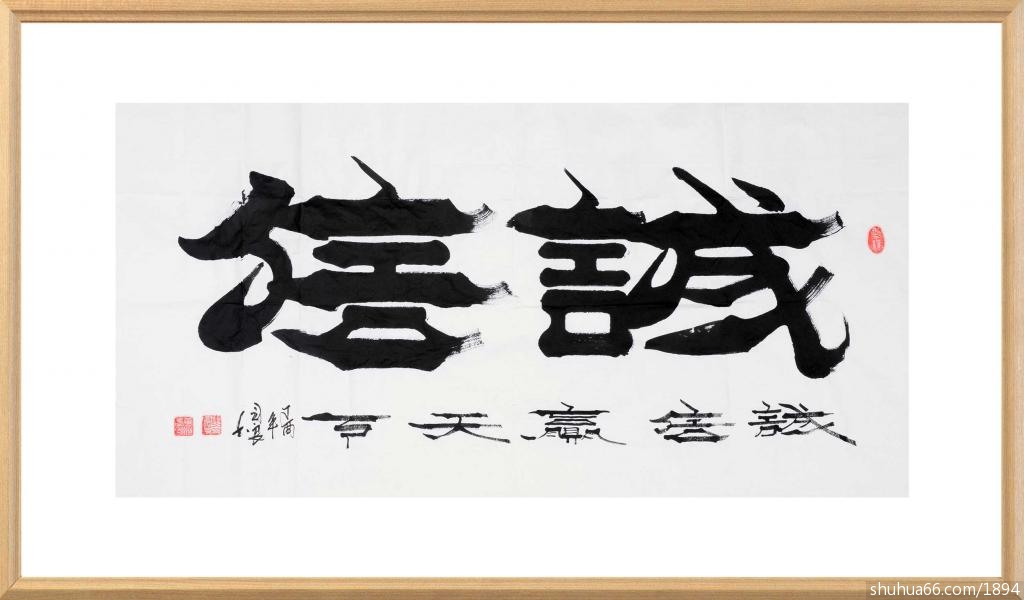 誠信
誠信贏天下
丁酉年
shuhua66.com/1894